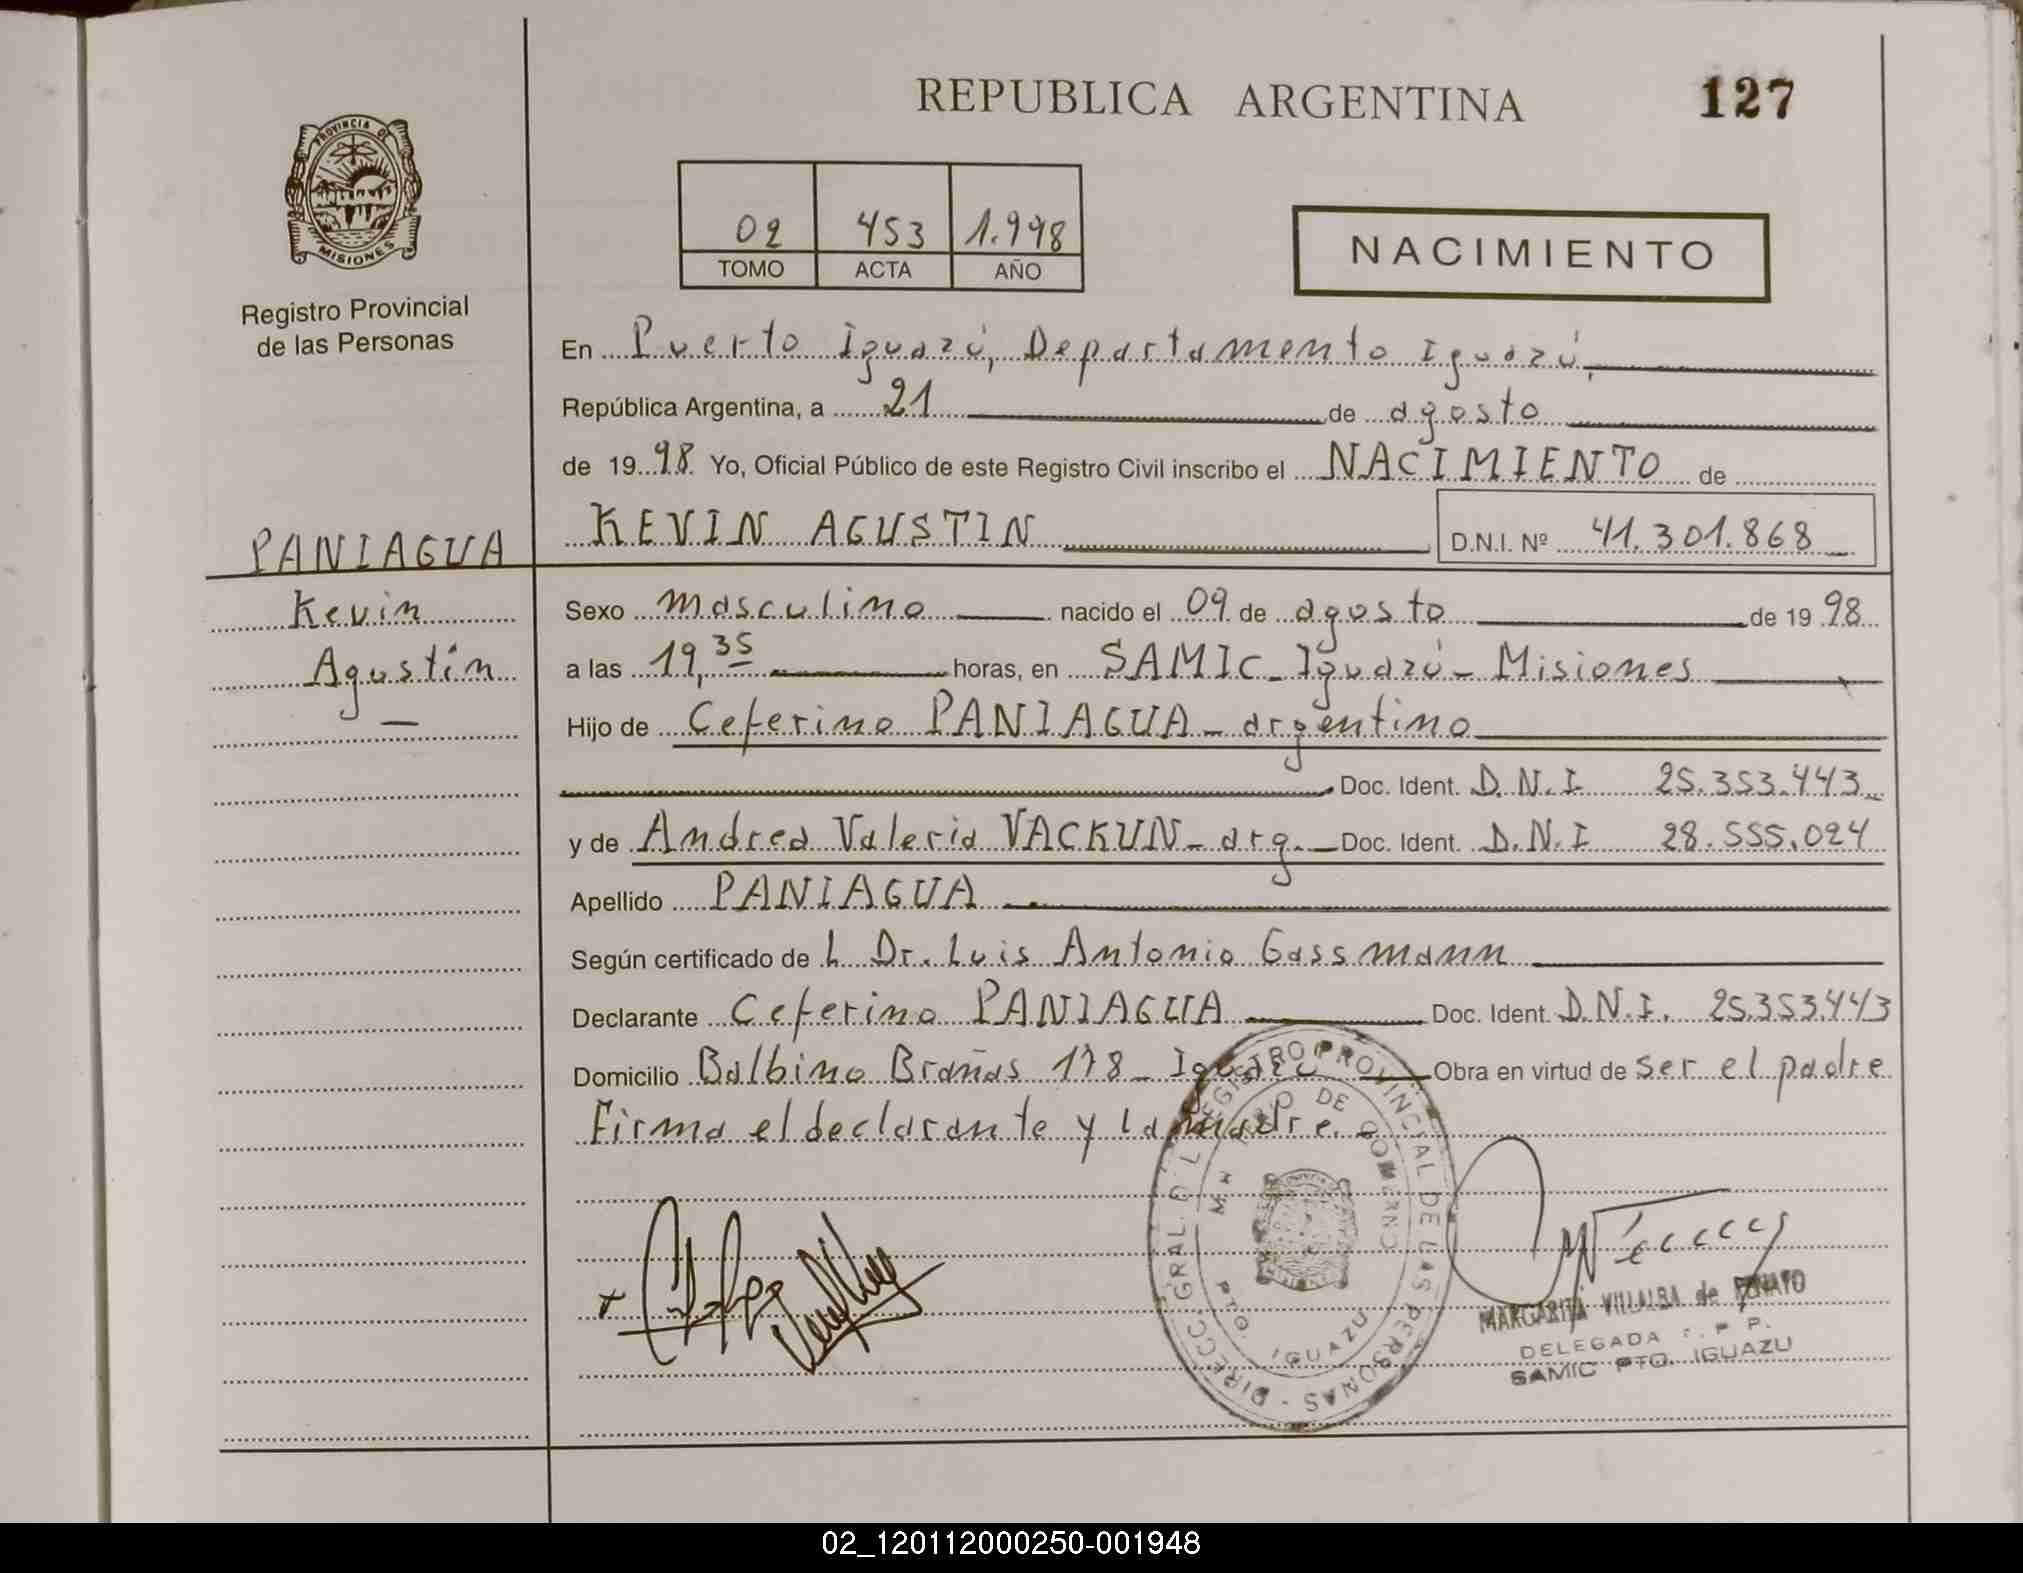 REPUBLICA ARGENTINA
127
PROVINCIA DE
MISIONES
Registro Provincial
de las Personas
02 453 1.998
TOMO ACTA AÑO
NACIMIENTO
En Puerto Iguazú, Departamento Iguazú,
República Argentina, a 21 de agosto
de 1998 Yo, Oficial Público de este Registro Civil inscribo el NACIMIENTO de
PANIAGUA
KEVIN AGUSTIN D.N.I. Nº 41.301.868
Kevin
Agustín
Sexo masculino nacido el 09 de agosto de 1998
a las 19,35 horas, en SAMIC - Iguazú - Misiones
Hijo de Ceferino PANIAGUA - argentino
Doc. Ident. D.N.I 25.353.443
y de Andrea Valeria VACKUN - arg. Doc. Ident. D.N.I 28.555.024
Apellido PANIAGUA
Según certificado de L Dr. Luis Antonio Gassmann
Declarante Ceferino PANIAGUA Doc. Ident. D.N.I. 25.353.443
Domicilio Balbino Brañas 178 - Iguazú Obra en virtud de ser el padre
Firma el declarante y la madre.
DIRECC. GRAL. DEL REGISTRO PROVINCIAL DE LAS PERSONAS
PTO. IGUAZU
MARGARITA VILLALBA de
DELEGADA R. P. P.
SAMIC PTO. IGUAZU
02_120112000250-001948